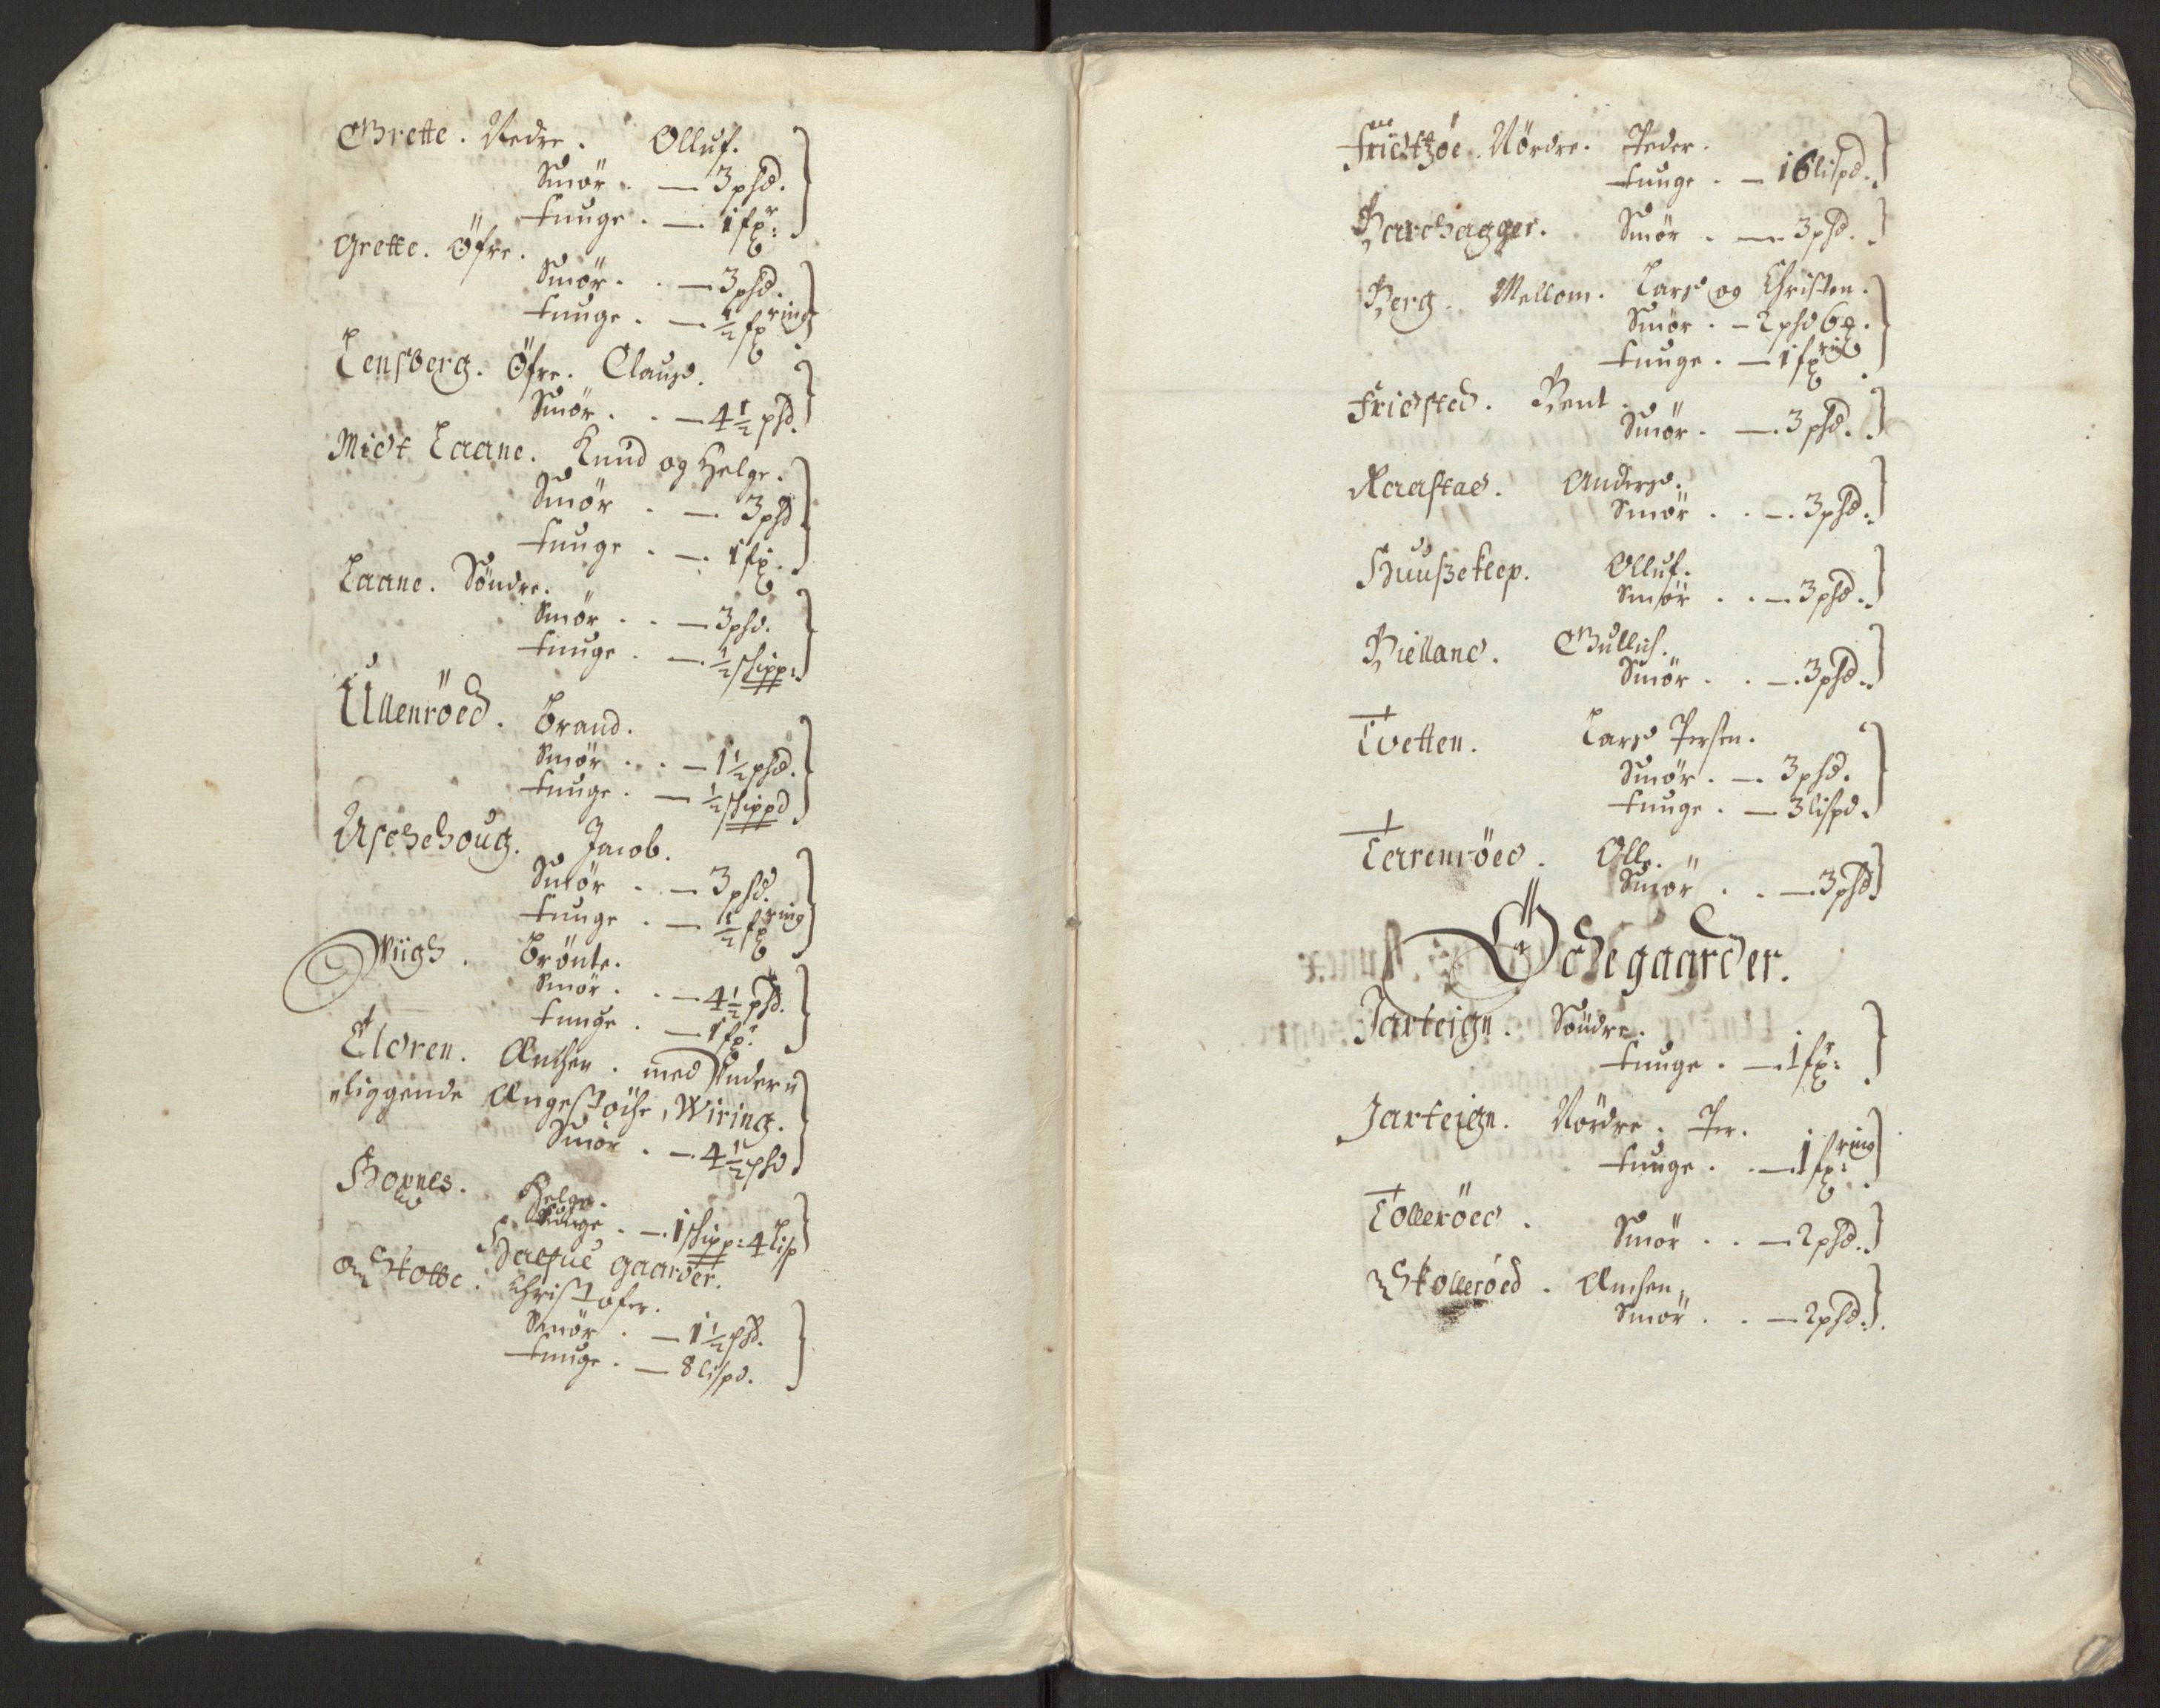 Grette. Nedre. Olluf.
Smör. — 3 phd.
tunge. — 1 fx:r
Grette. Öfre.
Smör. . — 3 phd.
tunge. — ½ fxring
Lensberg. Öfre. Clauß.
Smör. . — 4½ phd.
Midt Laane. Knud og Helge.
Smör . — 3 phd
tunge . — 1 fx.
Laane. Söndre.
Smör . . — 3 phd.
tunge . — ½ schipp:
Ullenröed. Brand.
Smör . . — 1½ phd.
tunge . — ½ schippd
Aschehoug. Jacob.
Smör . — 3 phd.
tunge . — ½ fxring
Wiigh. Brönte.
Smör . . — 4½ phd.
tunge . — 1 fx:r
Eldren. Amhen. med Under
liggende Wiring.
Smör . — 4½ phd
Helge.
tunge . — 1 schipp: 4 lisp
Halfue gaarder.
Skotte. Christofer.
Smör . — 1½ phd.
tunge . — 8 lispd.
Friidtzöe. Nördre. Peder.
tunge . — 16 lispd.
Barchagger. Smör . — 3 phd.
Berg. Mellom. Lars og Christen.
Smör . — 2 phd 6
tunge . — 1 fxring
Fridsted. Bent.
Smör . — 3 phd.
Raastad. Anders.
Smör . . — 3 phd.
Huußeklep. Olluf.
Smör . . — 3 phd.
Bielland. Gullich.
Smör . . — 3 phd.
Tvetten. Lars Persen.
Smör . — 3 phd.
tunge . — 3 lispd.
Tarrenröed. Olle.
Smör . . — 3 phd
Ödegaarder.
Jarteign. Söndre.
tunge . — 1 fx:r
Jarteign. Nördre. Per.
tunge . . — 1 fxring
Tolleröed.
Smör . . — 2 phd.
Skolleröed. Amhen.
Smör . . — 2 phd.